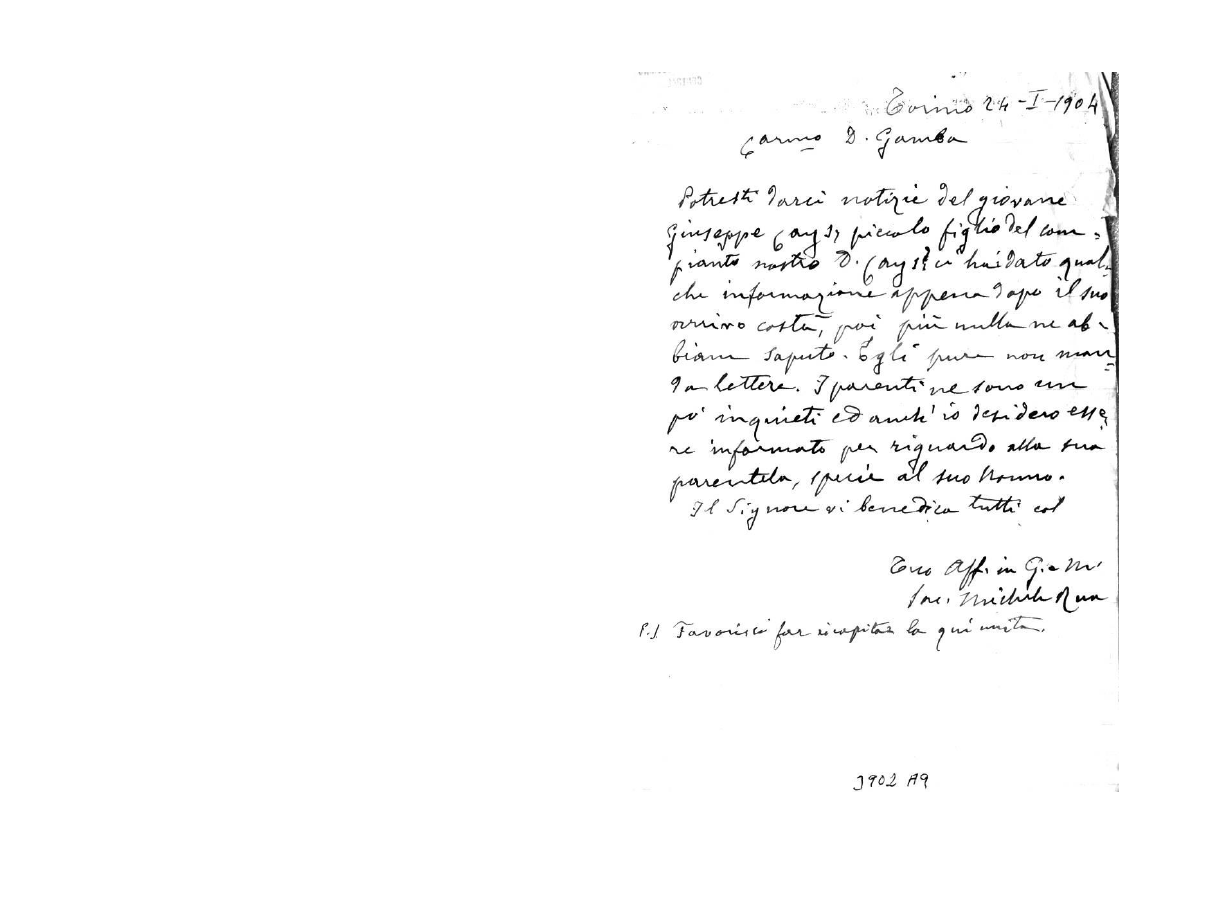 Torino 24-I-1904
Carmo D. Gamba
Potresti darci notizie del giovane
Giuseppe Cays, piccolo figlio del com=
pianto nostro D. Cays? ci hai dato qual=
che informazione appena dopo il suo
arrivo costà, poi più nulla ne ab=
biam saputo. Egli pure non man=
da lettere. I parenti ne sono un
po' inquieti ed anch'io desidero esse=
re informato per riguardo alla sua
parentela, specie al suo Nonno.
Il Signore vi benedica tutti col
Tuo Aff. in G. e M.
Sac. Michele Rua
P.S. Favorisci far ricapitar la qui unita.
3902 A9